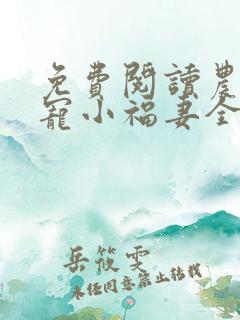 免費閱讀農
寵小福妻全
岳筱雯
未經同意禁止轉載